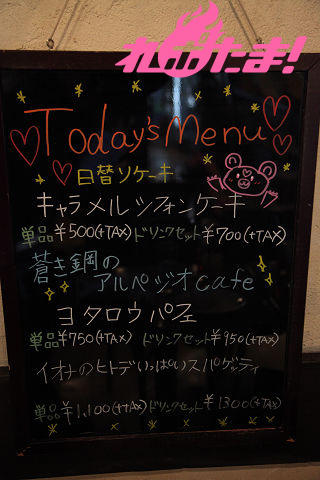 れポたま!
Today's Menu
日替りケーキ
キャラメルシフォンケーキ
単品¥500(+TAX) ドリンクセット¥700(+TAX)
蒼き鋼の
アルペジオcafe
ヨタロウパフェ
単品¥750(+TAX) ドリンクセット¥950(+TAX)
イオナのヒトデいっぱいスパゲッティ
単品¥1,100(+TAX) ドリンクセット¥1300(+TAX)